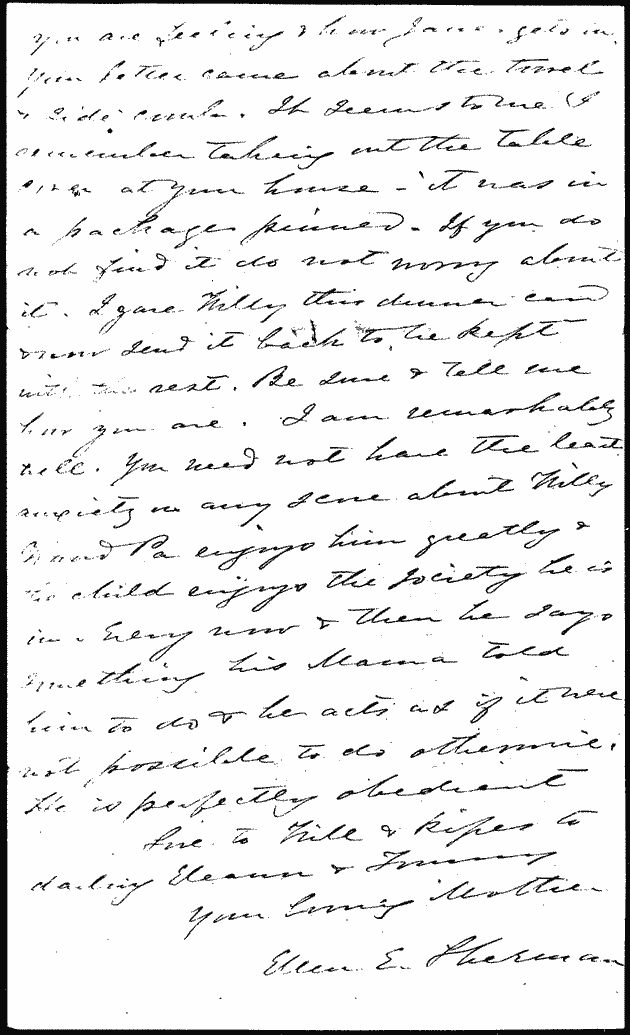 you are feeling & how Jane gets on.
Your father came about the towel
& side comb. It seems to me I
remember taking out the table
over at your house - it was in
a package pinned. If you do
not find it do not worry about
it. I gave Willy this dinner card
now send it back to be kept
with the rest. Be sure & tell me
how you are. I am remarkably
well. You need not have the least
anxiety on any score about Willy
Grand Pa enjoys him greatly &
the child enjoys the society he is
in. Every now & then he says
something his Mama told
him to do & he acts as if it were
not possible to do otherwise.
He is perfectly obedient
Love to Will & Kisses to
darling Eleanor & Tommy
Your loving Mother
Ellen E. Sherman